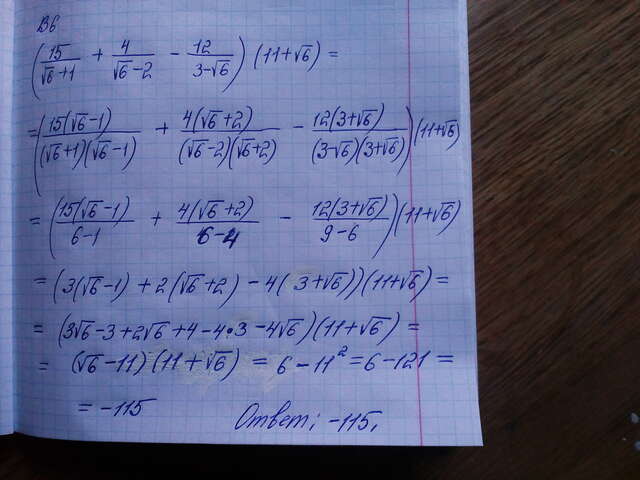 В6
(15/(√6+1) + 4/(√6-2) - 12/(3-√6)) (11+√6) =
= (15(√6-1)/((√6+1)(√6-1)) + 4(√6+2)/((√6-2)(√6+2)) - 12(3+√6)/((3-√6)(3+√6))) (11+√6)
= (15(√6-1)/(6-1) + 4(√6+2)/(6-4) - 12(3+√6)/(9-6)) (11+√6)
= (3(√6-1) + 2(√6+2) - 4(3+√6)) (11+√6) =
= (3√6-3+2√6+4-4·3-4√6) (11+√6) =
= (√6-11) (11+√6) = 6-11² = 6-121 =
= -115 Ответ: -115.